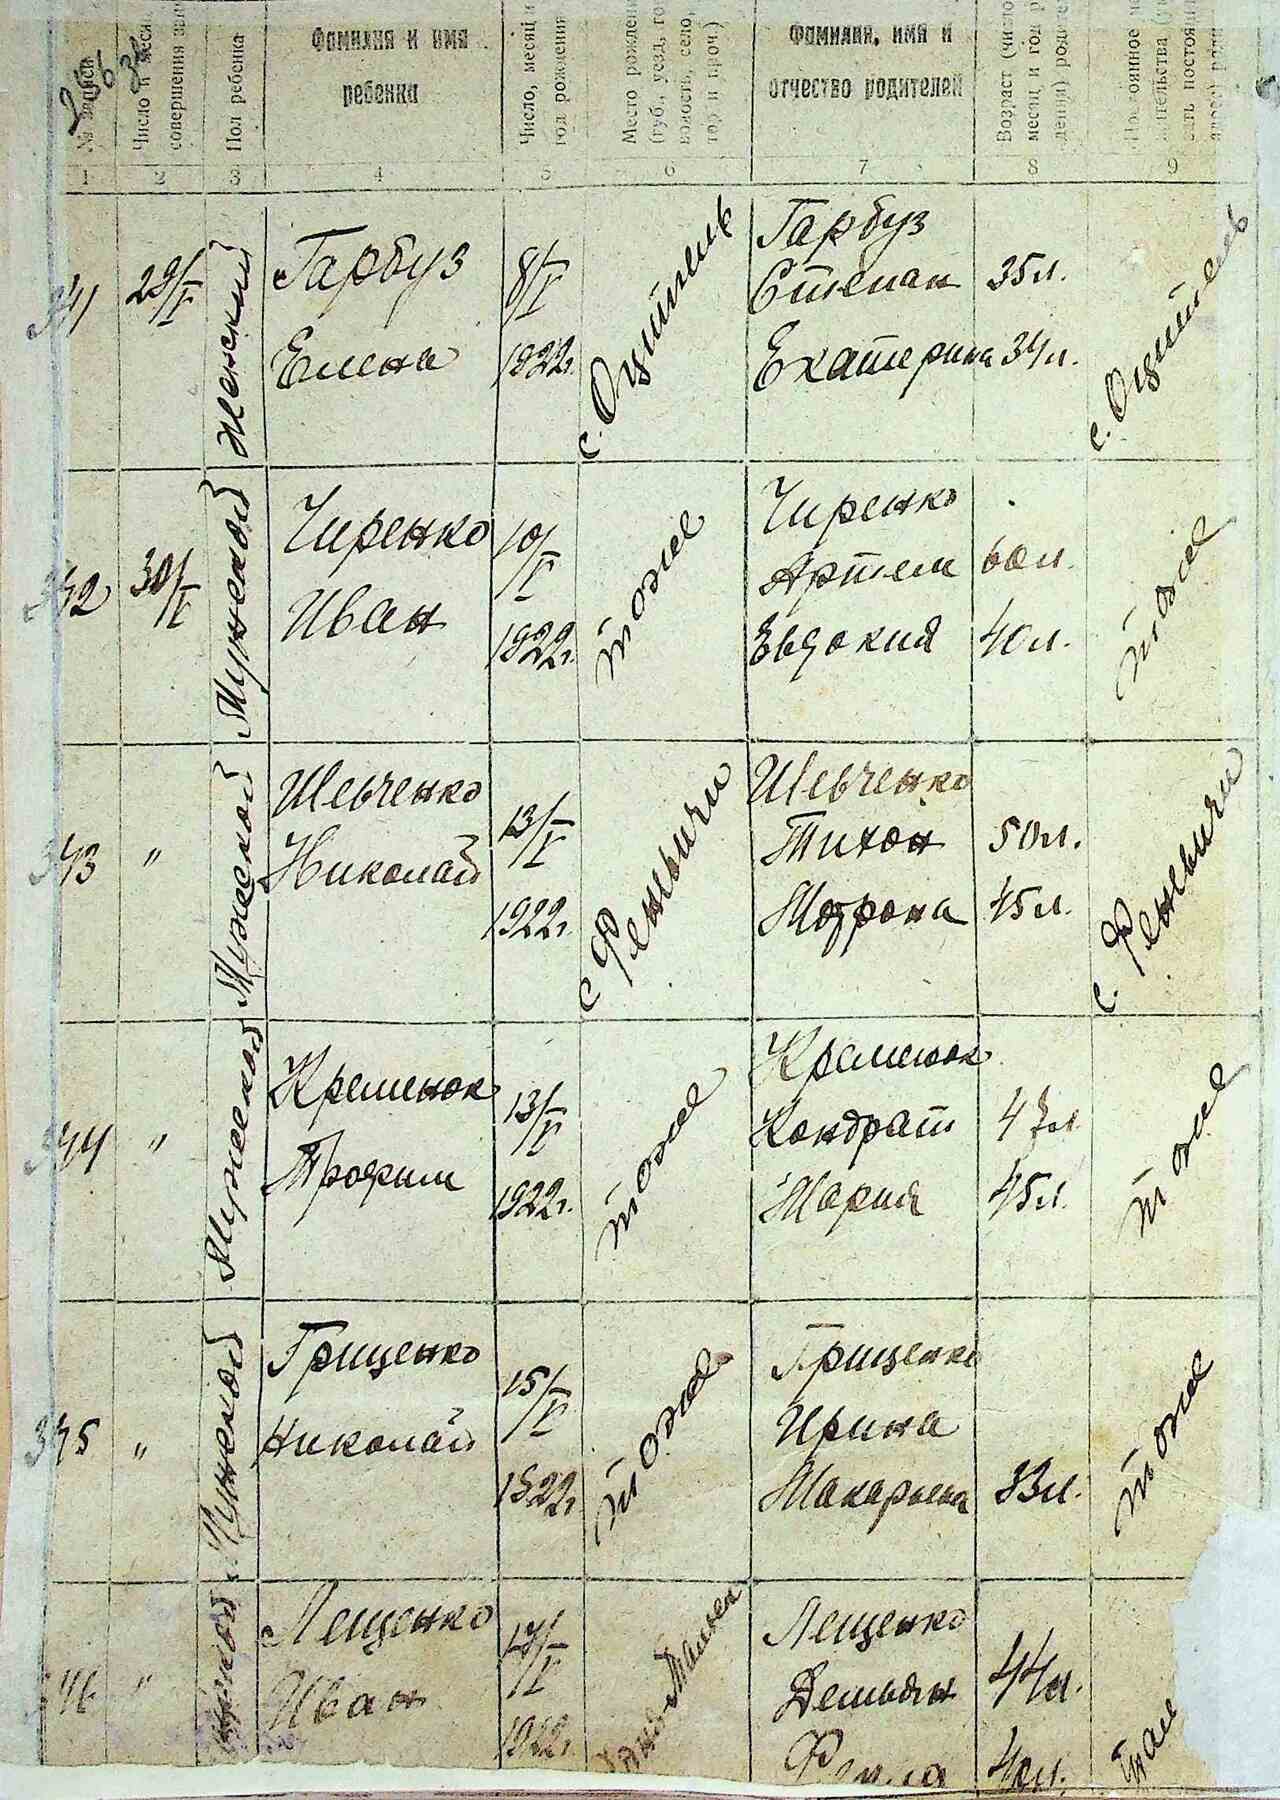 № записи
Число и меся
совершения зап
Пол ребенка
Фамилия и имя
ребенка
Число, месяц и
год рождения
Место рождени
(губ., уезд, го
волость, село,
тор и проч.)
Фамилия, имя и
отчество родителей
Возраст (число
месяц и год р
дения) родите
Постоянное
жительства
1 2 3 4 5 6 7 8 9
341 29/V Женский Гарбуз 8/V Гарбуз
Степан 35 л.
Елена 1922 г. Екатерина 34 л.
342 30/V Мужской Чиренко 10/V тоже Чиренко тоже
Артем 60 л.
Иван 1922 г. Евдокия 40 л.
343 " Мужской Шевченко 13/V с Феневичи Шевченко с. Феневичи
Николай Тихон 50 л.
1922 г. Мотрона 45 л.
344 " Мужской Кременюк 13/V тоже Кременюк тоже
Кондрат 47 л
Трофим 1922 г. Мария 45 л.
345 " Мужской Грищенко 15/V тоже Грищенко тоже
Николай Ирина
1922 г. Макарьевна 33 л.
346 " Лещенко 17/V Лещенко
Иван Демьян 44 л.
1922 г. 40 л.